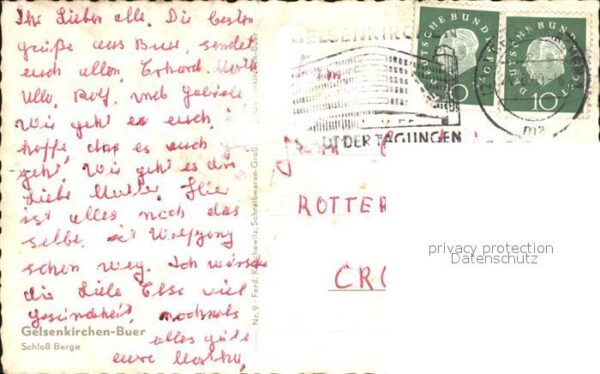 Ihr Lieben alle. Die besten
grüße aus Buer, sendet
euch allen, Erhard,
Ulla, Rolf, und Gabriele
Wie geht es euch,
hoffe das es euch gut
geht. Wie geht es der
liebe Mutter. Hier
ist alles noch das
selbe, ist Wolfgang
schon weg. Ich wünsche
die liebe Else viel
Gesundeheit, nochmals
alles gute
eure
Gelsenkirchen-Buer
Schloß Berge
Nr. 9 · Ferd. Schreibwaren-Groß
GELSENKIRCHEN
STADT DER TAGUNGEN
DEUTSCHE BUNDESPOST
10
DEUTSCHE BUNDESPOST
10
ma
ROTTER
CRO
privacy protection
Datenschutz